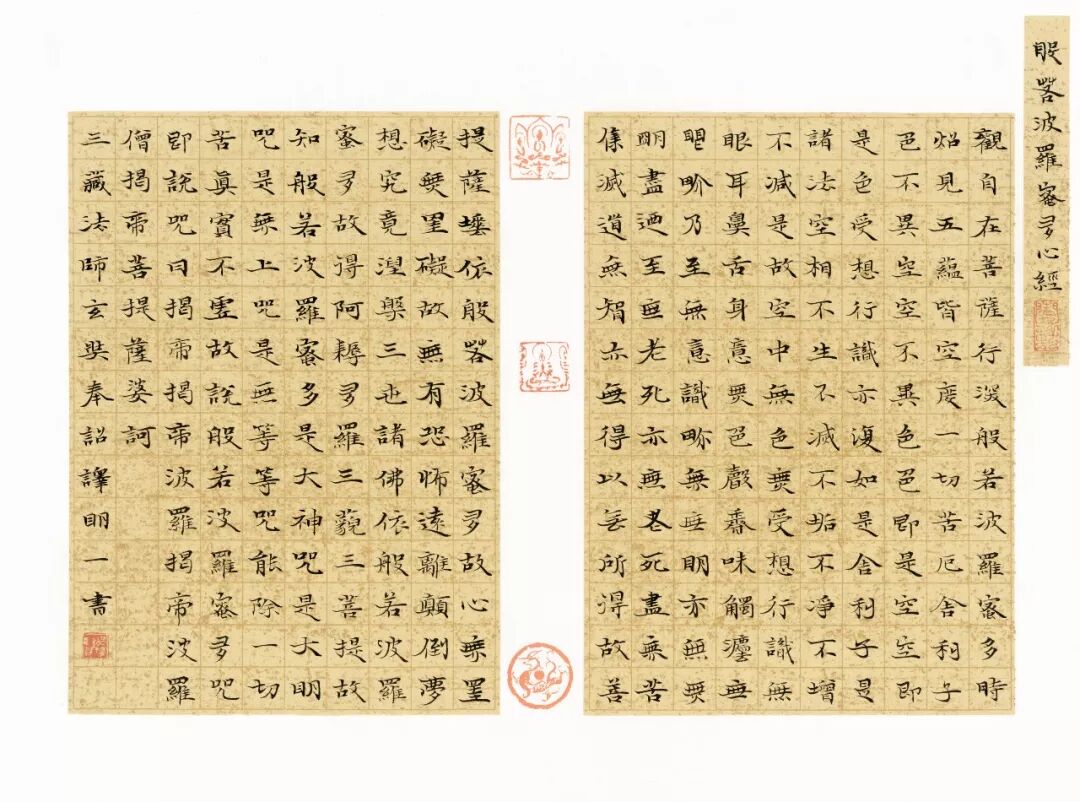 般若波羅蜜多心經
觀自在菩薩行深般若波羅蜜多時
炤見五蘊皆空度一切苦厄舍利子
色不異空空不異色色即是空空即
是色受想行識亦復如是舍利子是
諸法空相不生不滅不垢不淨不增
不減是故空中無色無受想行識無
眼耳鼻舌身意無色聲香味觸法無
眼界乃至無意識界無無明亦無無
明盡迺至無老死亦無老死盡無苦
集滅道無智亦無得以無所得故菩
提薩埵依般若波羅蜜多故心無罣
礙無罣礙故無有恐怖遠離顛倒夢
想究竟涅槃三世諸佛依般若波羅
蜜多故得阿耨多羅三藐三菩提故
知般若波羅蜜多是大神咒是大明
咒是無上咒是無等等咒能除一切
苦真實不虛故說般若波羅蜜多咒
即說咒曰揭帝揭帝波羅揭帝波羅
僧揭帝菩提薩婆訶
三藏法師玄奘奉詔譯明一書